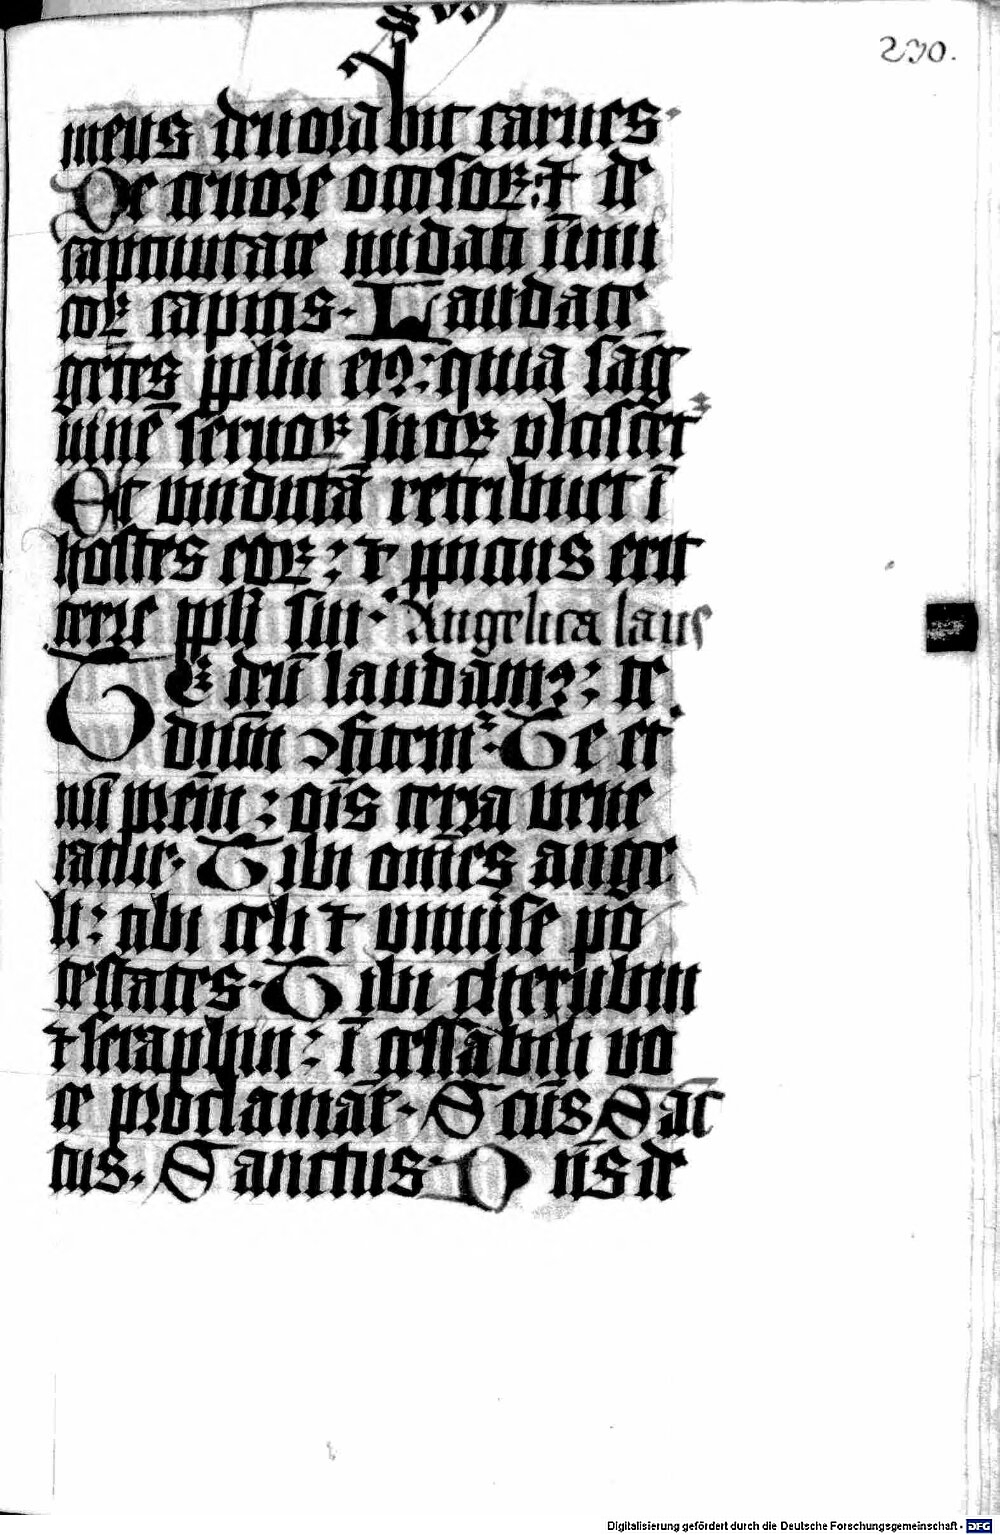 230.
meus deuorabit carnes.
De cruore occisor̄: ⁊ de
captiuitate nudati inimi
cor̄ capitis. Laudate
gētes pplm eiꝰ: quia sāg
uinē seruor̄ suor̄ vlciscet᷑
Et vindictā retribuet ī
hostes eor̄: ⁊ ppicius erit
terre ppli sui. Angelica laus
TE deū laudamꝰ: te
dnm̄ ꝯfitem᷑. Te et̉
nū prēm: oīs terra vene
ratur. Tibi om̄es ange
li: tibi celi ⁊ vniuer̄se po
testates. Tibi cherubin
⁊ seraphin: īcessabili vo
ce proclamāt. Sctūs Sāc
tus. Sanctus. Dn̄s de
Digitalisierung gefördert durch die Deutsche Forschungsgemeinschaft - DFG